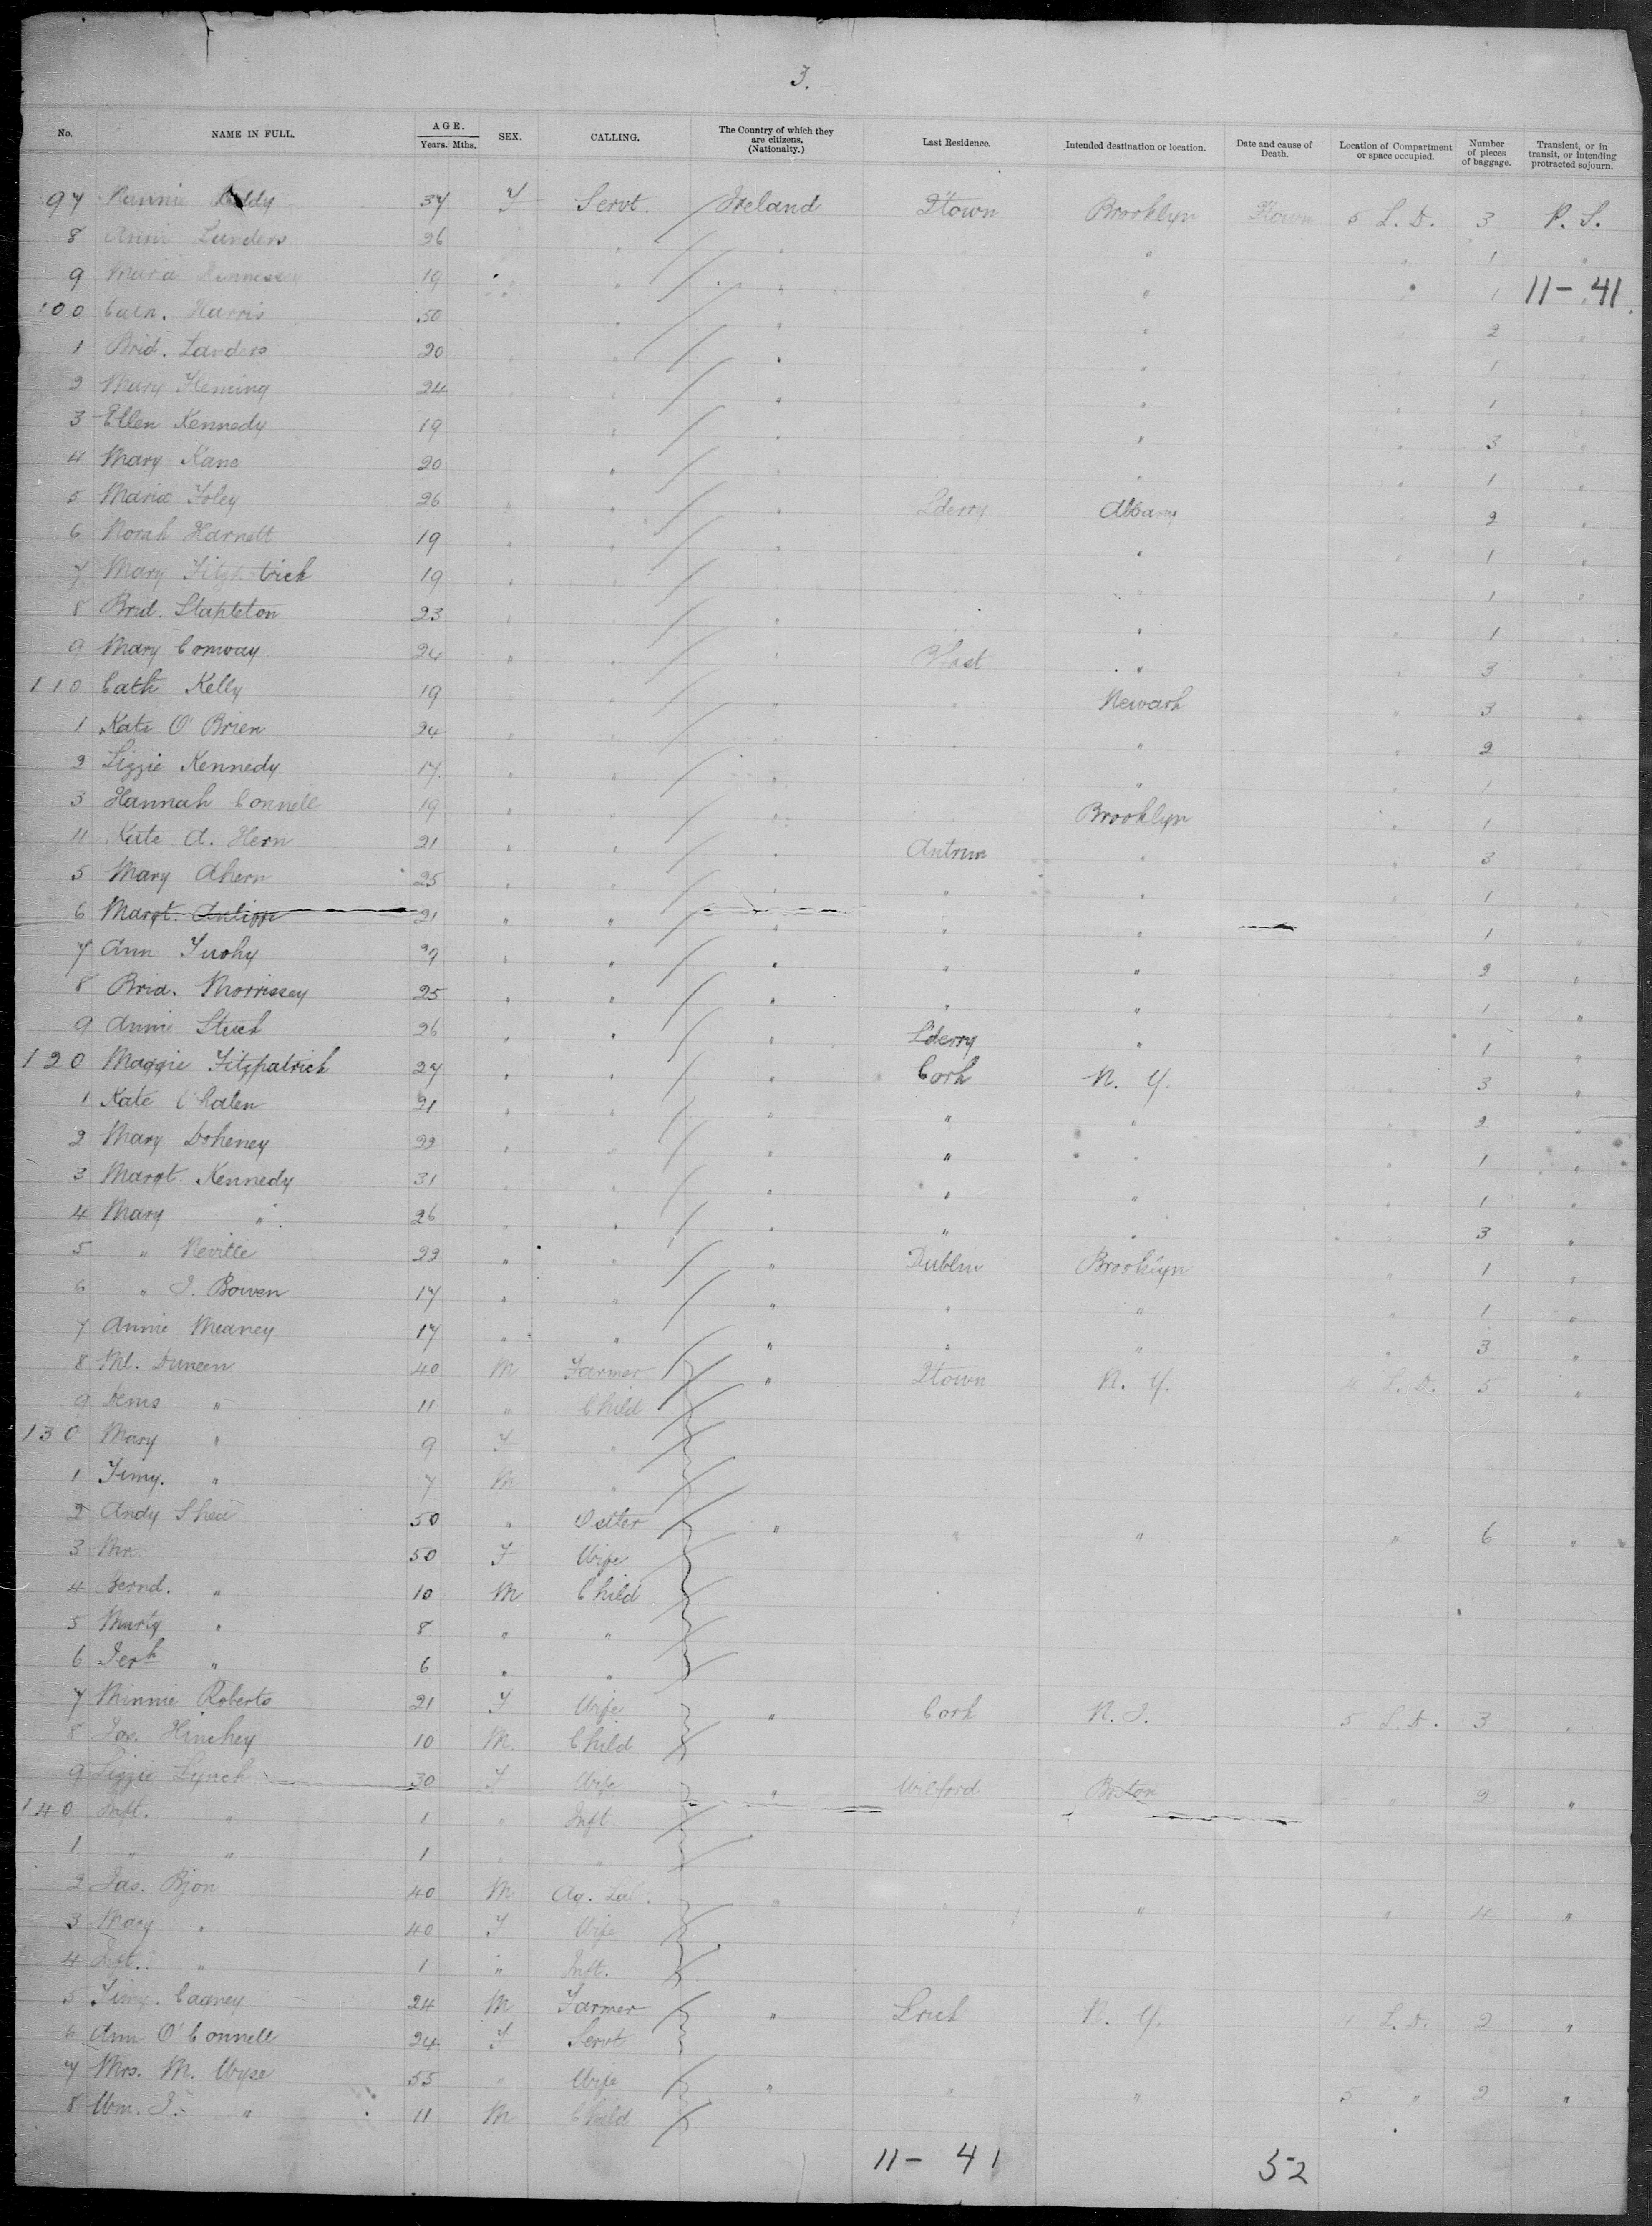 3.
No. NAME IN FULL. AGE. Years. Mths. SEX. CALLING. The Country of which they are citizens. (Nationalty.) Last Residence. Intended destination or location. Date and cause of Death. Location of Compartment or space occupied. Number of pieces of baggage. Transient, or in transit, or intending protracted sojourn.
97 37 F Servt. Ireland Qtown Brooklyn 5 L. D. 3 P. S.
8 Anni Landers 26 " " " 1 "
9 Maria Hennessey 19 " " " " 1 11-41.
100 Cath. Harris 50 " " " 2 "
1 Brid. Landers 20 " " " 1 "
2 Mary Fleming 24 " " 1 "
3 Ellen Kennedy 19 " " " " 3 "
4 Mary Kane 20 " " " " 1 "
5 Maria Foley 26 " " " L'derry Albany 2 "
6 Norah Harnett 19 " " " " " 1 "
7 Mary Fitzpatrick 19 " " " 1 "
8 Brid. Stapleton 23 " " " 1 "
9 Mary Conway 24 " " " " 3 "
110 Cath Kelly 19 " " Newark " 3 "
1 Kate O'Brien 24 " " " " 2 "
2 Lizzie Kennedy 17 " " " " 1 "
3 Hannah Connell 19 " " " Brooklyn " 1
4 Kate A. Hern 21 " " " Antrim " " 3 "
5 Mary Ahern 25 " " " " " 1 "
6 Margt. 21 " " " " " 1 "
7 Ann Tuohy " " " " " 2 "
8 Brid. Morrissey 25 " " " " " 1 "
9 Annie 26 " " " L'derry " 1 "
120 Maggie Fitzpatrick 27 " " " Cork N. Y. 3 "
1 Kate 21 " " " " " 2 "
2 Mary Doheney 22 " " " " " 1 "
3 Margt. Kennedy 31 " " " " " 1 "
4 Mary " 26 " " " " " 3 "
5 " Neville 22 " " " Dublin Brooklyn " 1 "
6 " J. Bowen 17 " " " " " " 1 "
7 Annie Meaney 17 " " " " " " 3 "
8 Ml. Duneen 40 M Farmer " Qtown N. Y. 4 L. D. 5 "
9 Denis " 11 " Child
130 Mary " 9 F "
1 Timy. " 7 M "
2 Andy Shea 50 " " " " " 6 "
3 Mr. 50 F Wife
4 Bernd. " 10 M Child
5 Murty " 8 " "
6 Jerh " 6 " "
7 Minnie Roberts 21 F Wife " Cork N. J. 5 L. D. 3 "
8 Jos. Hinchey 10 M. Child
9 Lizzie Lynch 30 F Wife " Boston " 2 "
140 Inft. " 1 " Inft.
1 " " 1 " "
2 Jas. 40 M Ag. Lab. " " " " 4 "
3 Mary " 40 F Wife
4 Inft. " 1 " Inft.
5 Timy. Cagney 24 M Farmer " Lrick N. Y. L. D. 2 "
6 Ann O'Connell 24 F Servt
7 Mrs. M. Wyse 55 " Wife " " " 5 " 2 "
8 Wm. J. " 11 M Child
11- 41 52